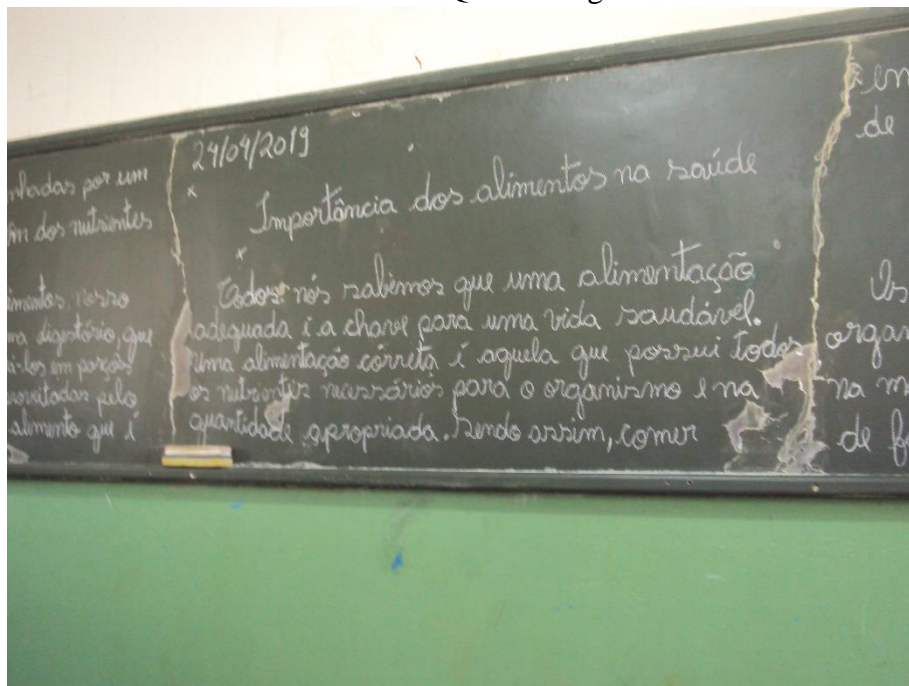 por um
dos nutrientes
nosso
digestório, que
em porções
pelo
alimento que é
24/04/2019
Importância dos alimentos na saúde
Todos nós sabemos que uma alimentação
adequada é a chave para uma vida saudável.
uma alimentação correta é aquela que possui todos
os nutrientes necessários para o organismo e na
quantidade apropriada. Sendo assim, comer
de
Os
na
de